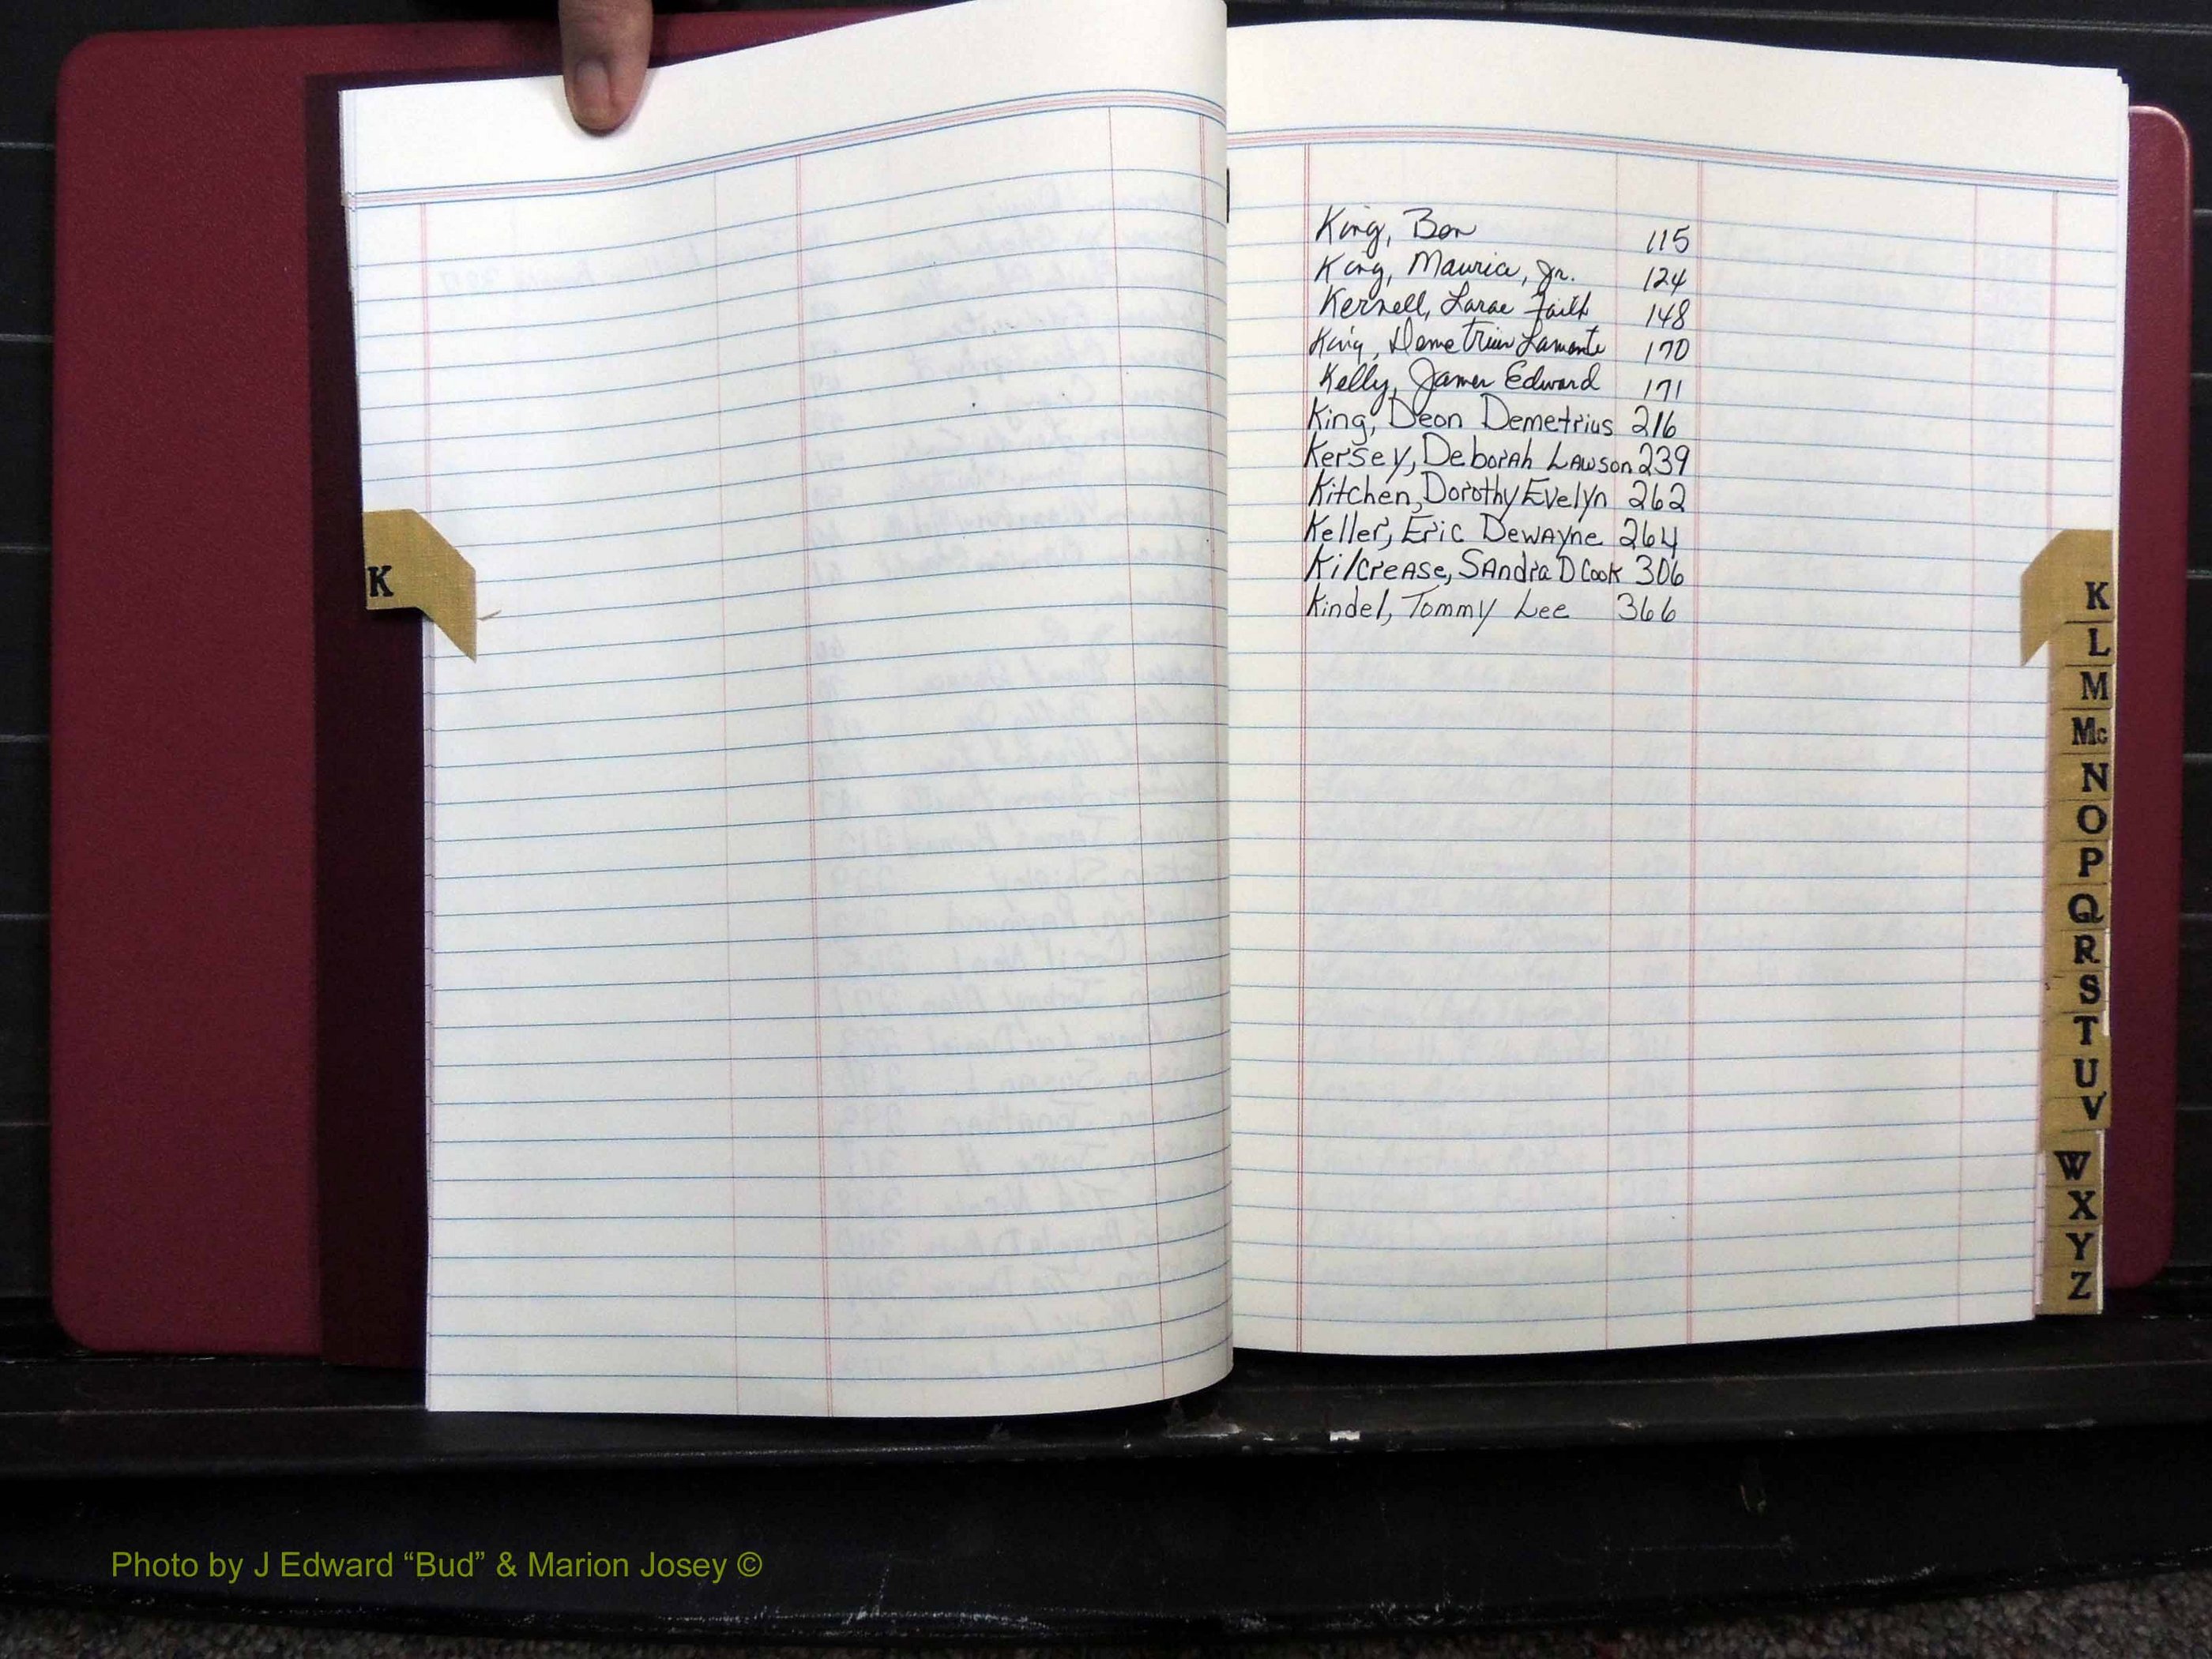 K
King, Ben 115
King, Maurice, Jr. 124
Kernell, Larae Faith 148
King, Demetrius Lamonte 170
Kelly, James Edward 171
King, Deon Demetrius 216
Kersey, Deborah Lawson 239
Kitchen, Dorothy Evelyn 262
Keller, Eric Dewayne 264
Kilcrease, Sandra D Cook 306
Kindel, Tommy Lee 366
K
L
M
Mc
N
O
P
Q
R
S
T
U
V
W
X
Y
Z
Photo by J Edward “Bud” & Marion Josey ©